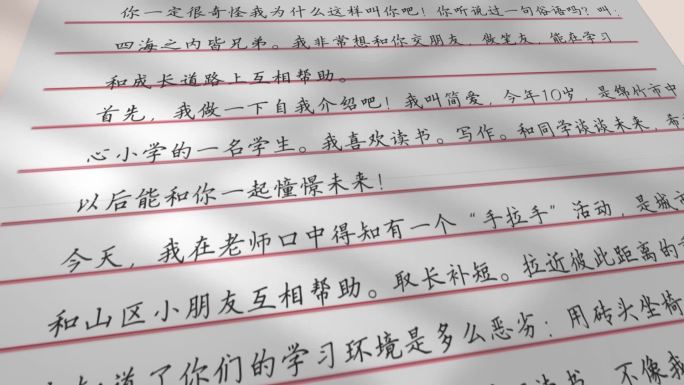 你一定很奇怪我为什么这样叫你吧！你听说过一句俗语吗？叫：
四海之内皆兄弟。我非常想和你交朋友，做笔友，能在学习
和成长道路上互相帮助。
首先，我做一下自我介绍吧！我叫简爱，今年10岁，是绵竹市中
心小学的一名学生。我喜欢读书。写作。和同学谈谈未来，希
以后能和你一起憧憬未来！
今天，我在老师口中得知有一个“手拉手”活动，是城市
和山区小朋友互相帮助。取长补短。拉近彼此距离的
知道了你们的学习环境是多么恶劣：用砖头坐椅
读书，不像我